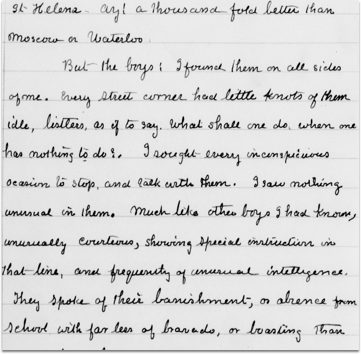 St Helena - ay! a thousand fold better than
Moscow or Waterloo.
But the boys: I found them on all sides
of me. Every street corner had little knots of them
idle, listless, as if to say. What shall one do, when one
has nothing to do?. I sought every inconspicuous
occasion to stop, and talk with them. I saw nothing
unusual in them. Much like other boys I had known,
unusually courteous, showing special instruction in
that line, and frequently of unusual intelligence.
They spoke of their banishment, or absence from
school with far less of bravado, or boasting than